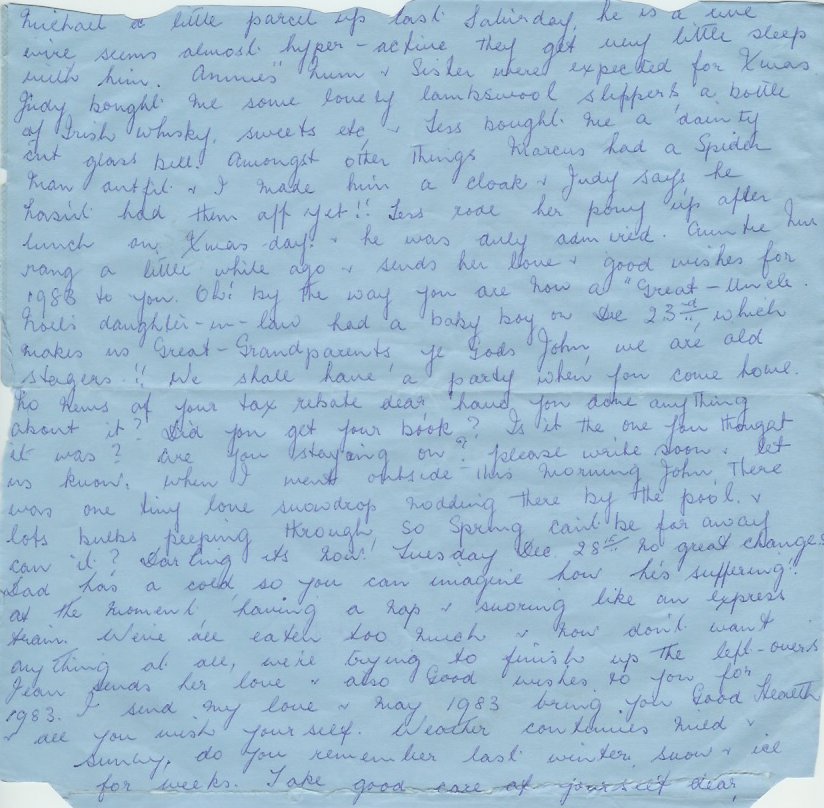 Michael a little parcel up last Saturday, he is a live
wire seems almost hyper-active they get very little sleep
with him. Annies' Mum & Sister were expected for Xmas
Judy bought me some lovely lambswool slippers, a bottle
of Irish whisky, sweets etc, & Tess bought me a dainty
cut glass bell. Amongst other things Marcus had a Spider
Man outfit & I made him a cloak & Judy says he
hasn't had them off yet!! Tess rode her pony up after
lunch on Xmas day & he was duly admired. Auntie
rang a little while ago & sends her love & good wishes for
1983 to you. Oh! by the way you are now a "Great-Uncle.
Noel's daughter-in-law had a baby boy on Dec 23rd which
makes us Great-Grandparents, ye Gods John, we are old
stagers!! We shall have a party when you come home.
No News of your tax rebate dear, have you done anything
about it? Did you get your book? Is it the one you thought
it was? Are you staying on? please write soon & let
us know. When I went outside this morning John, There
was one tiny lone snowdrop nodding there by the pool. &
lots bulbs peeping through, so Spring can't be far away
can it? Darling its now Tuesday Dec. 28th no great changes
Dad has a cold, so you can imagine how he's suffering!
at the moment, having a nap & snoring like an express
train. We've all eaten too much & now don't want
anything at all, we're trying to finish up the left-overs
Jean sends her love & also Good wishes to you for
1983. I send my love & may 1983 bring you Good Health
& all you wish yourself. Weather continues mild &
sunny, do you remember last winter, snow & ice
for weeks. Take good care of yourself dear,